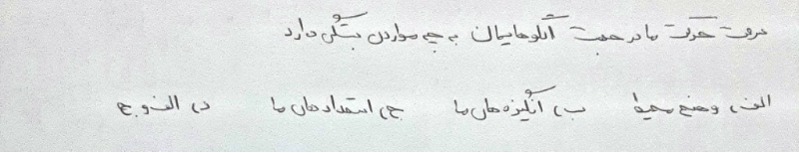 سرعت حرکت ما در جهت الگوهایمان به چه مواردی بستگی دارد
الف) وضع محیط ب) انگیزه های ما ج) استعداد های ما د) الف و ج